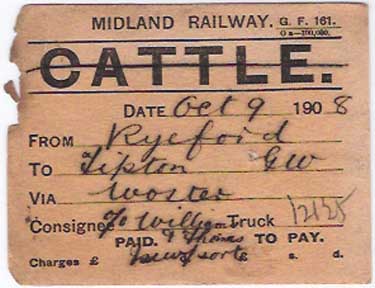 MIDLAND RAILWAY. G. F. 161.
CATTLE.
DATE Oct 9 1908
FROM Ryeford
TO Tipton GW
VIA Woster
Consignee T/o William Truck 12125
PAID. & Thomas TO PAY.
Charges £ £ s. d.